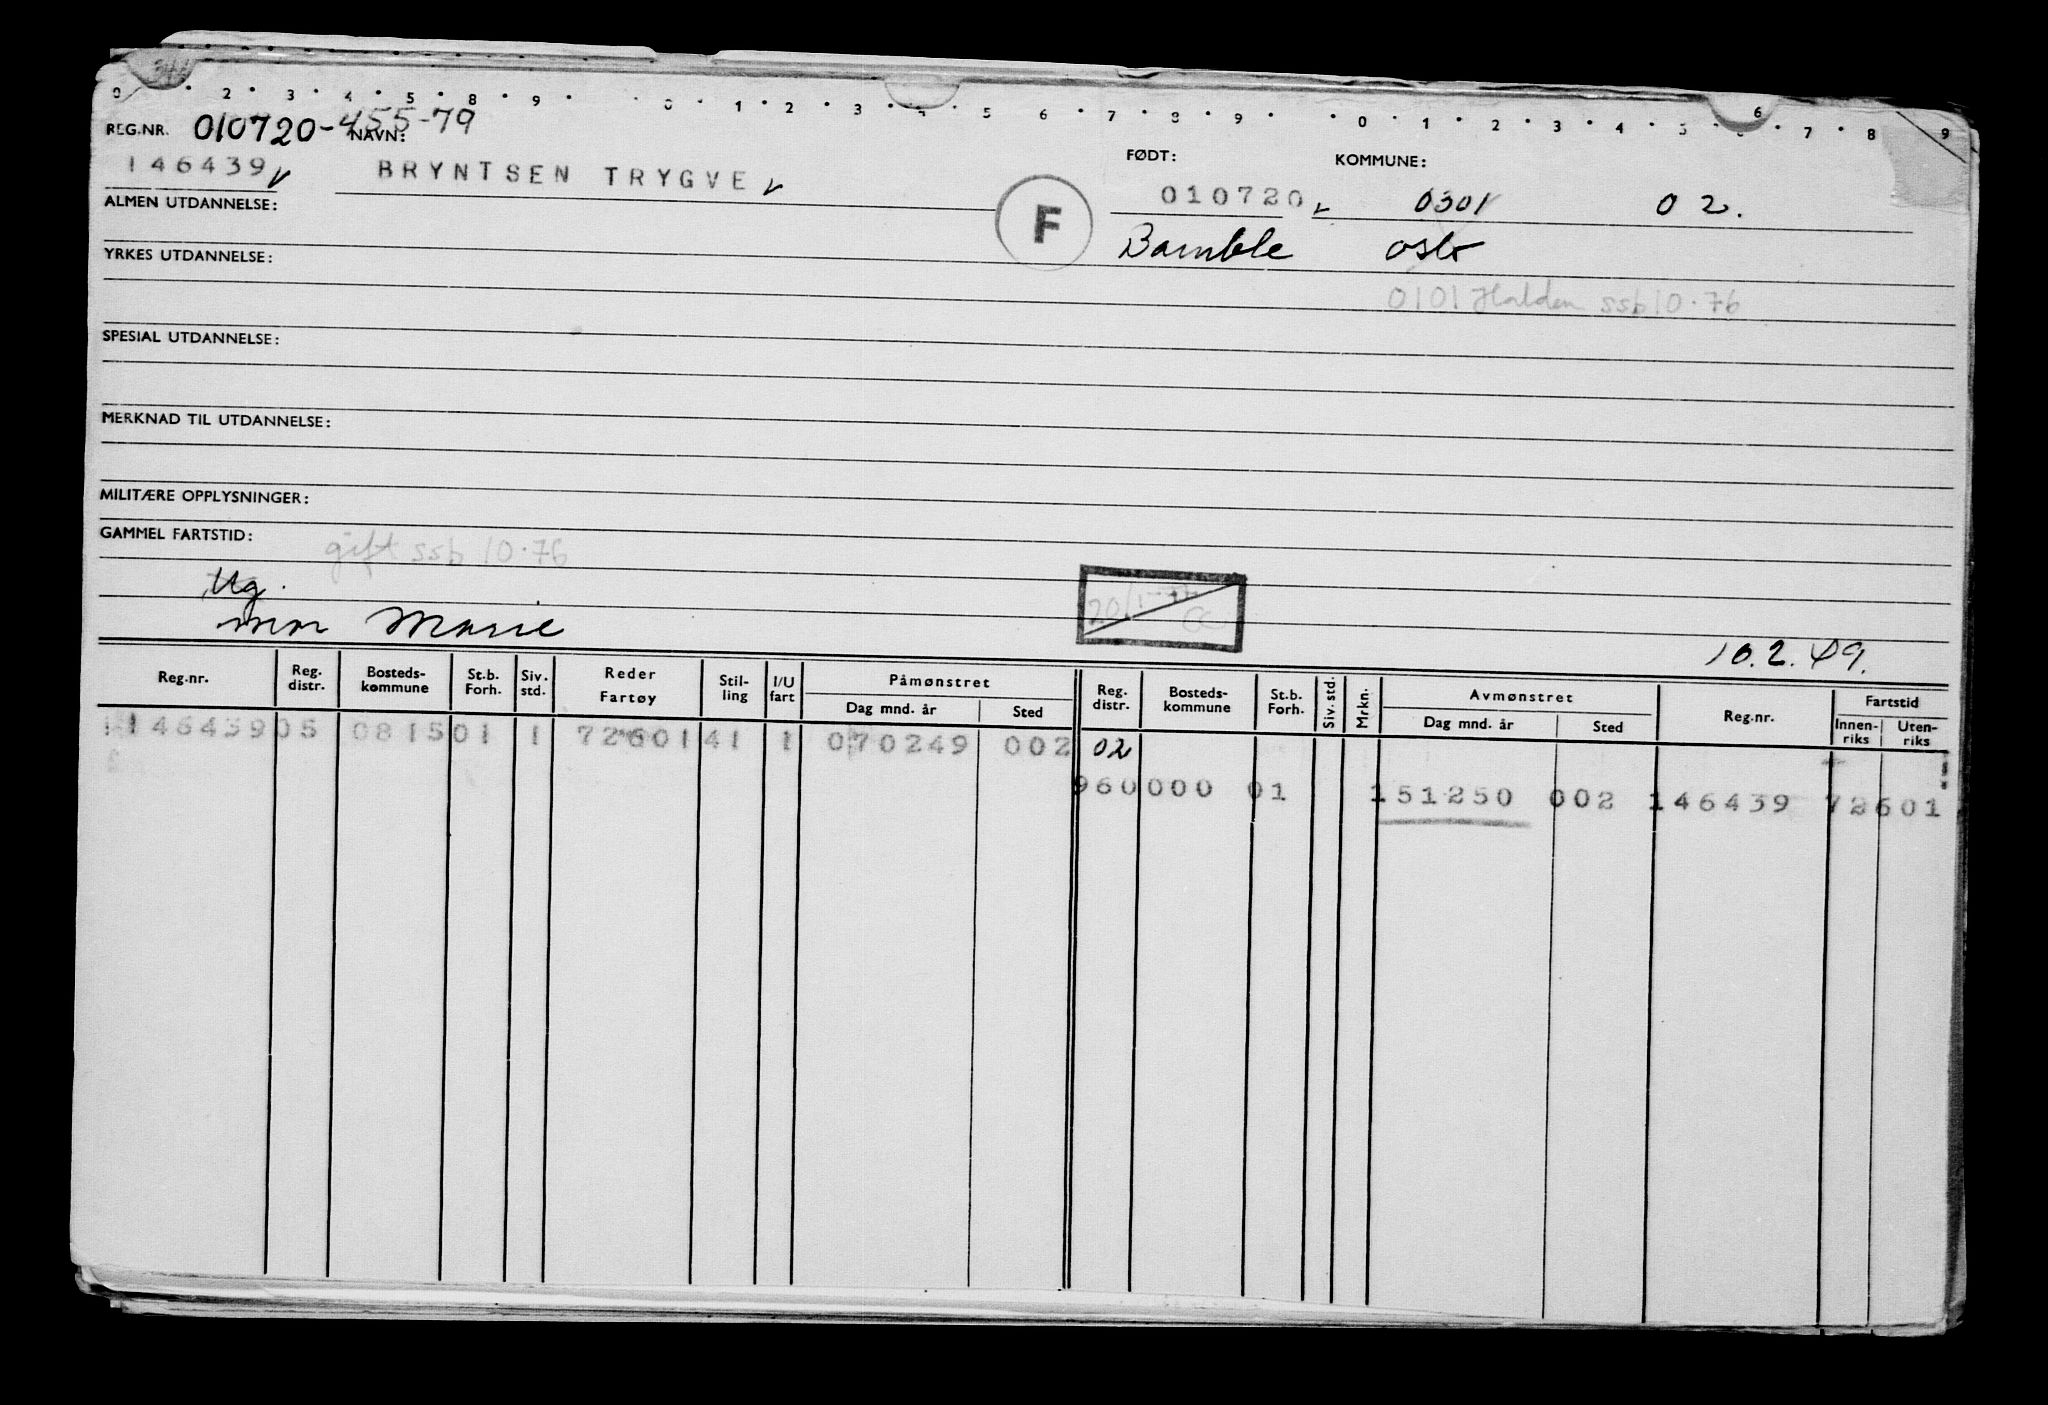 0 2 3 4 5 8 9 0 1 2 3 4 5 6 7 8 9 0 1 2 3 4 5 6 7 8 9
REG.NR. 010720-455-79 NAVN:
FØDT: KOMMUNE:
146439 BRYNTSEN TRYGVE 010720 0301 02.
ALMEN UTDANNELSE: F Bamble Oslo
YRKES UTDANNELSE:
0101 Halden ssb 10.76
SPESIAL UTDANNELSE:
MERKNAD TIL UTDANNELSE:
MILITÆRE OPPLYSNINGER:
GAMMEL FARTSTID: gift ssb 10.76
Ug.
mor Marie
10.2.49.
Reg.nr. Reg. distr. Bosteds-kommune St.b. Forh. Siv. std. Reder Fartøy Stil-ling I/U fart Påmønstret Dag mnd. år Sted Reg. distr. Bosteds-kommune St.b. Forh. Siv. std. Mrkn. Avmønstret Dag mnd. år Sted Reg.nr. Fartstid Innen-riks Uten-riks
146439 05 0815 01 1 72601 41 1 070249 002 02
960000 01 151250 002 146439 72601